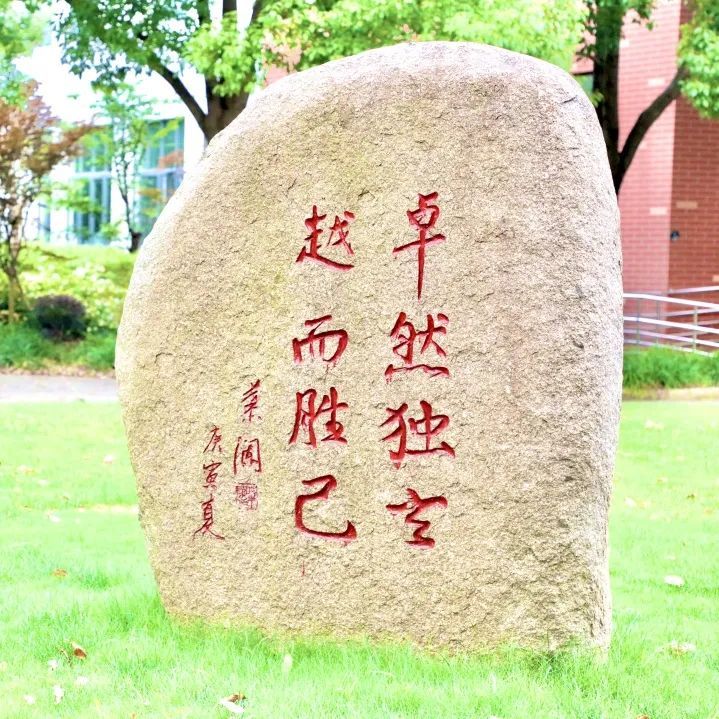 卓然独立
越而胜己
庚寅夏